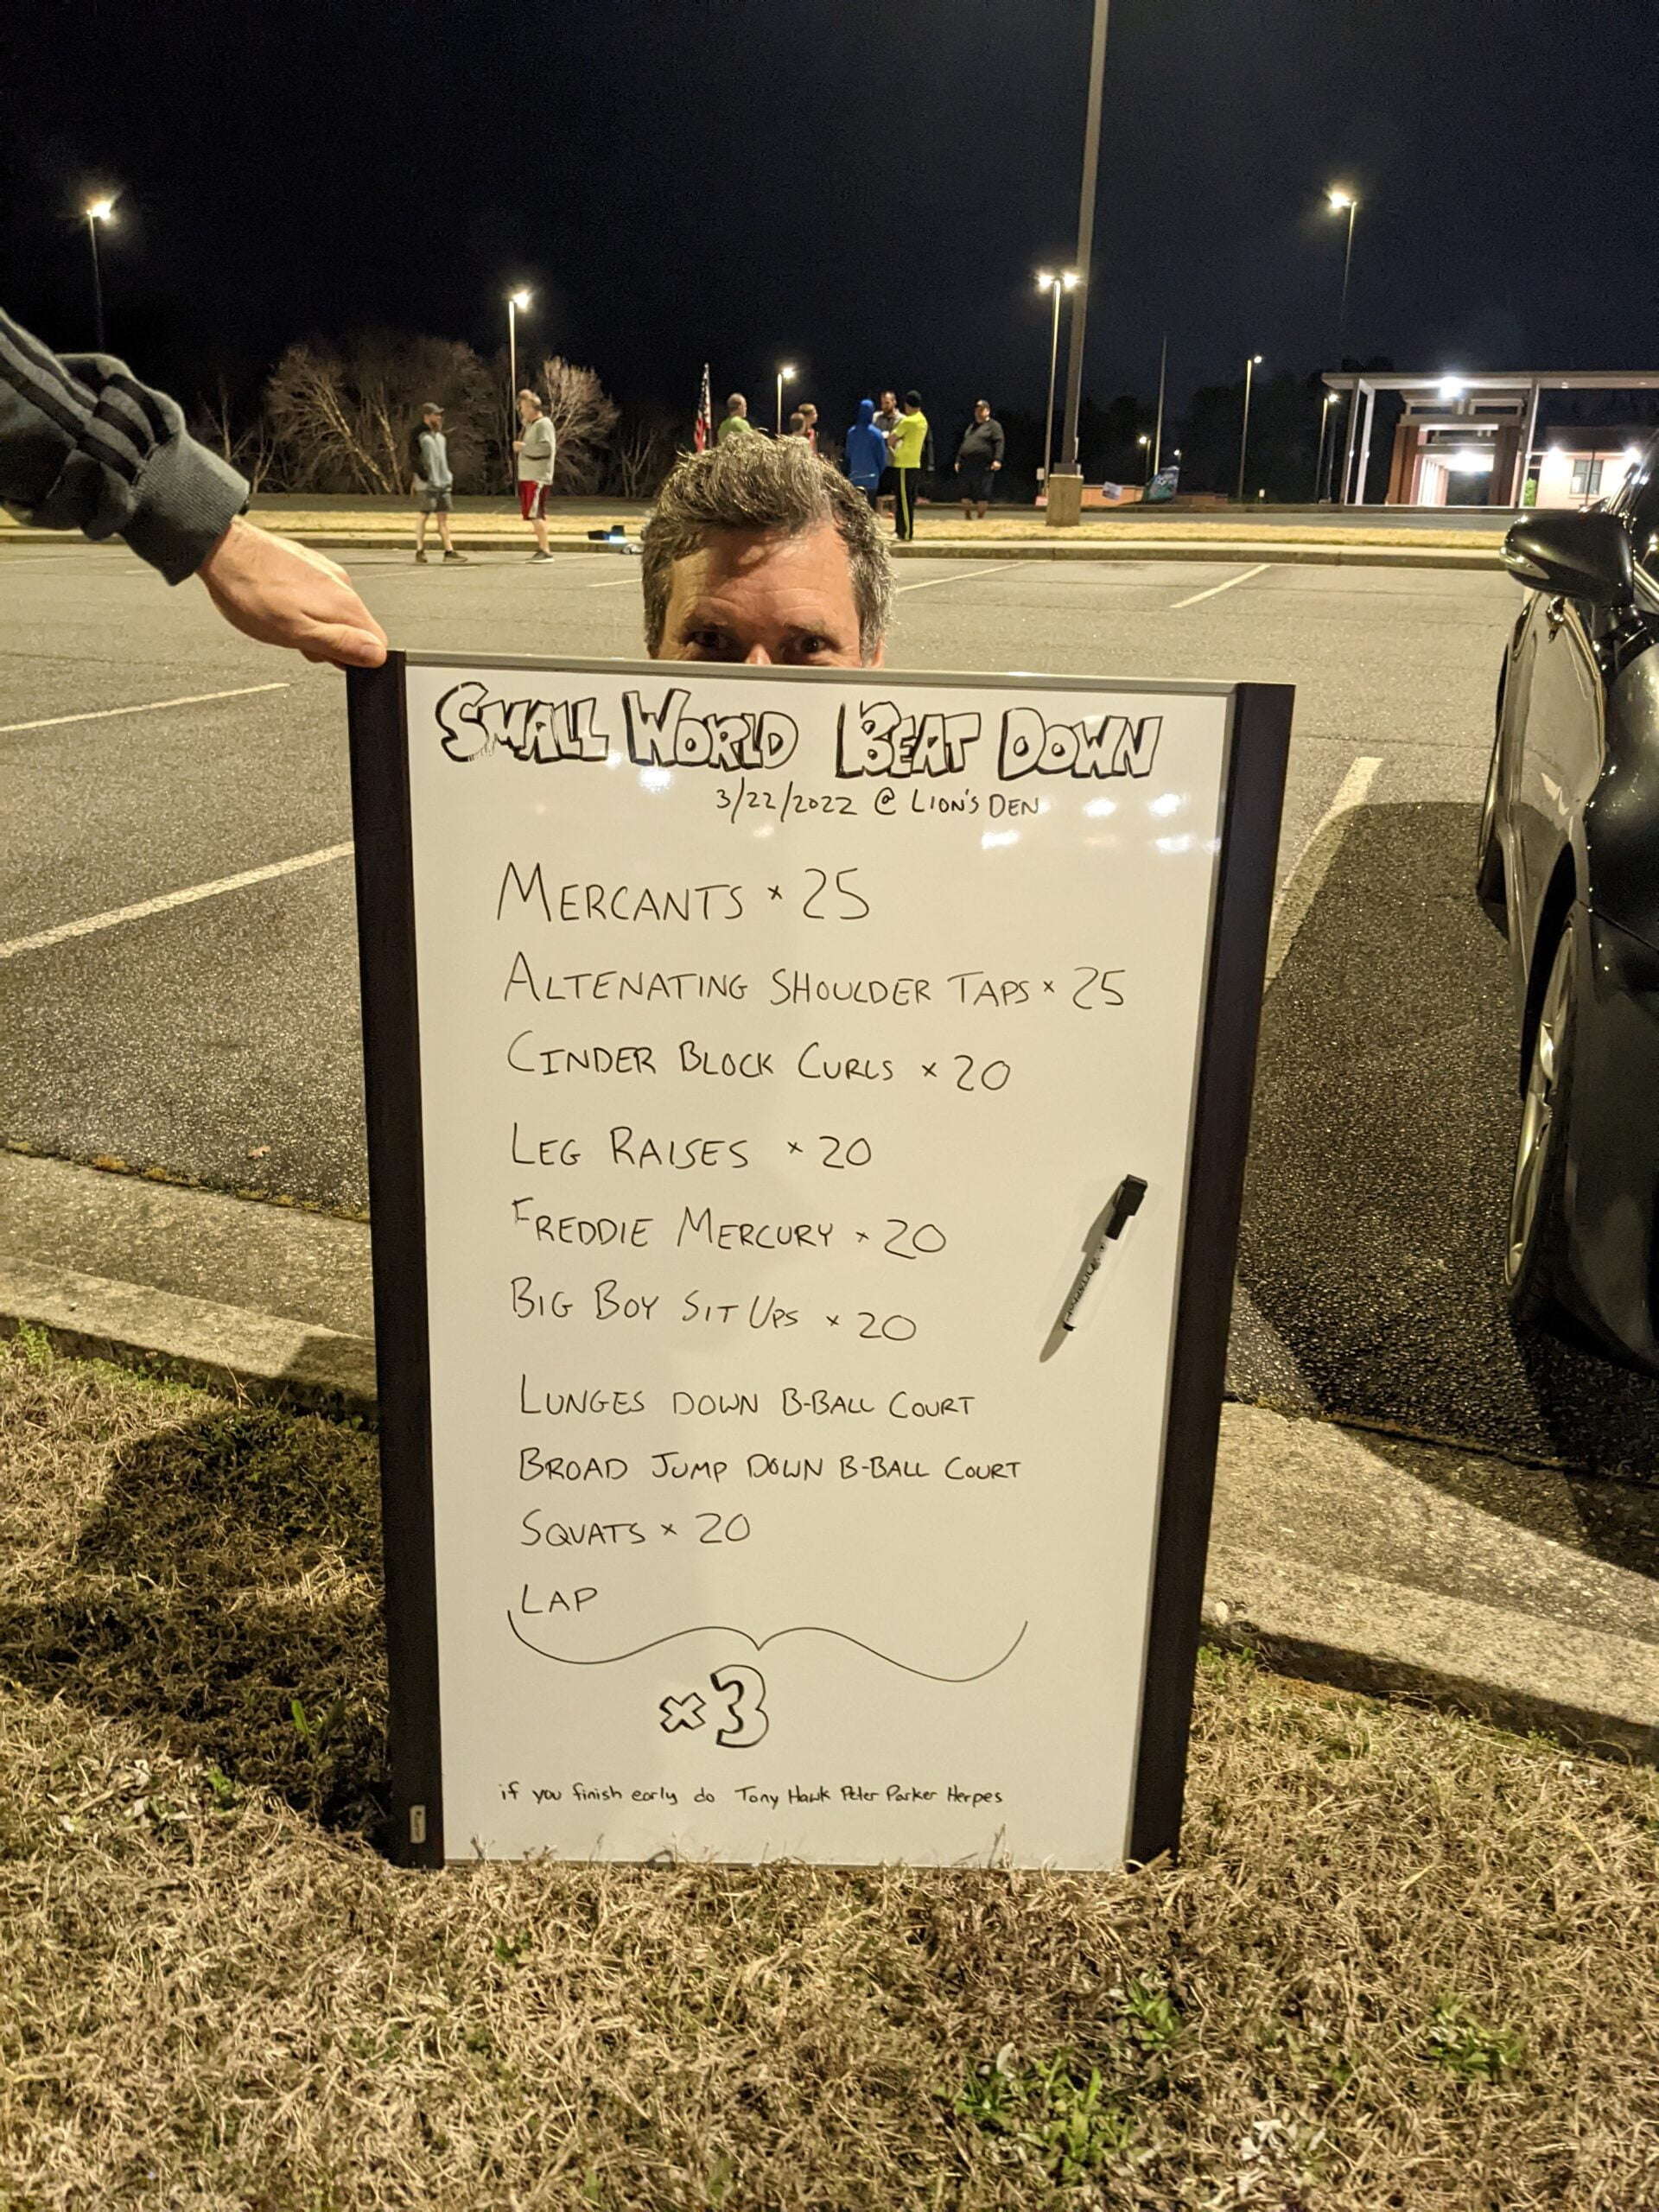 SMALL WORLD BEAT DOWN
3/22/2022 @ LION'S DEN
MERCANTS × 25
ALTENATING SHOULDER TAPS × 25
CINDER BLOCK CURLS × 20
LEG RAISES × 20
FREDDIE MERCURY × 20
BIG BOY SIT UPS × 20
LUNGES DOWN B-BALL COURT
BROAD JUMP DOWN B-BALL COURT
SQUATS × 20
LAP
×3
if you finish early do Tony Hawk Peter Parker Herpes